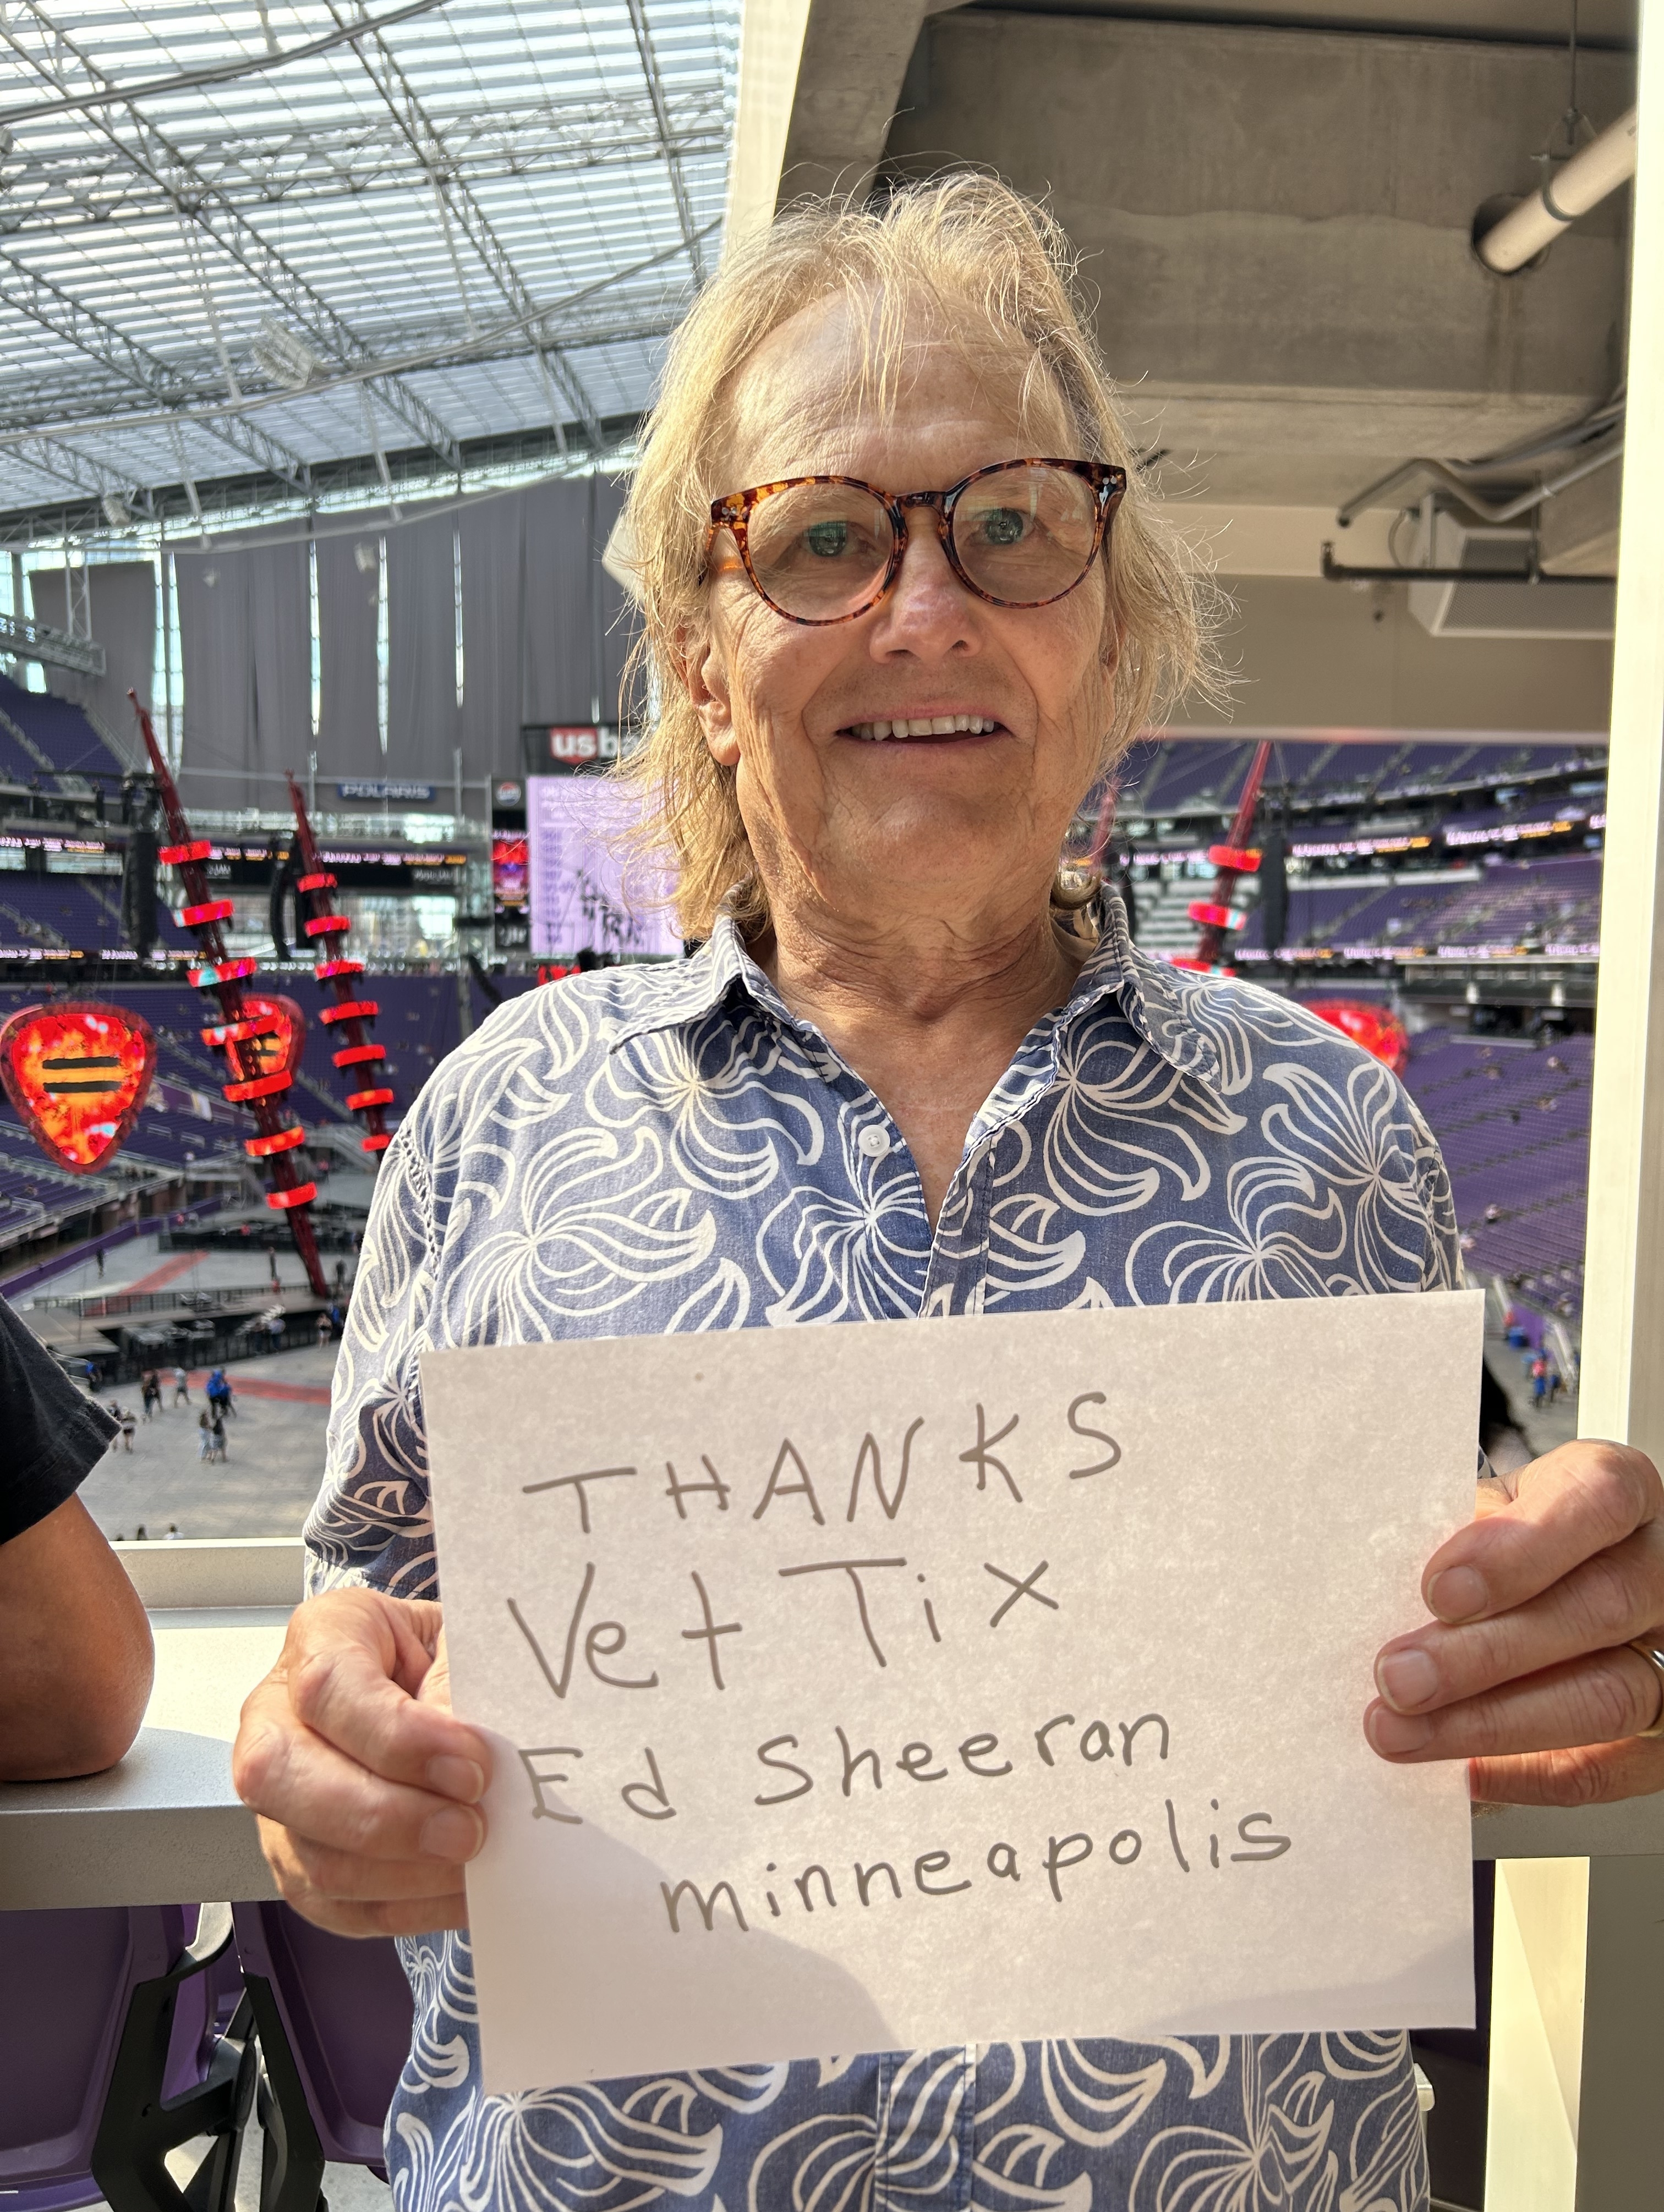 usb
POLARIS
THANKS
Vet Tix
Ed Sheeran
minneapolis